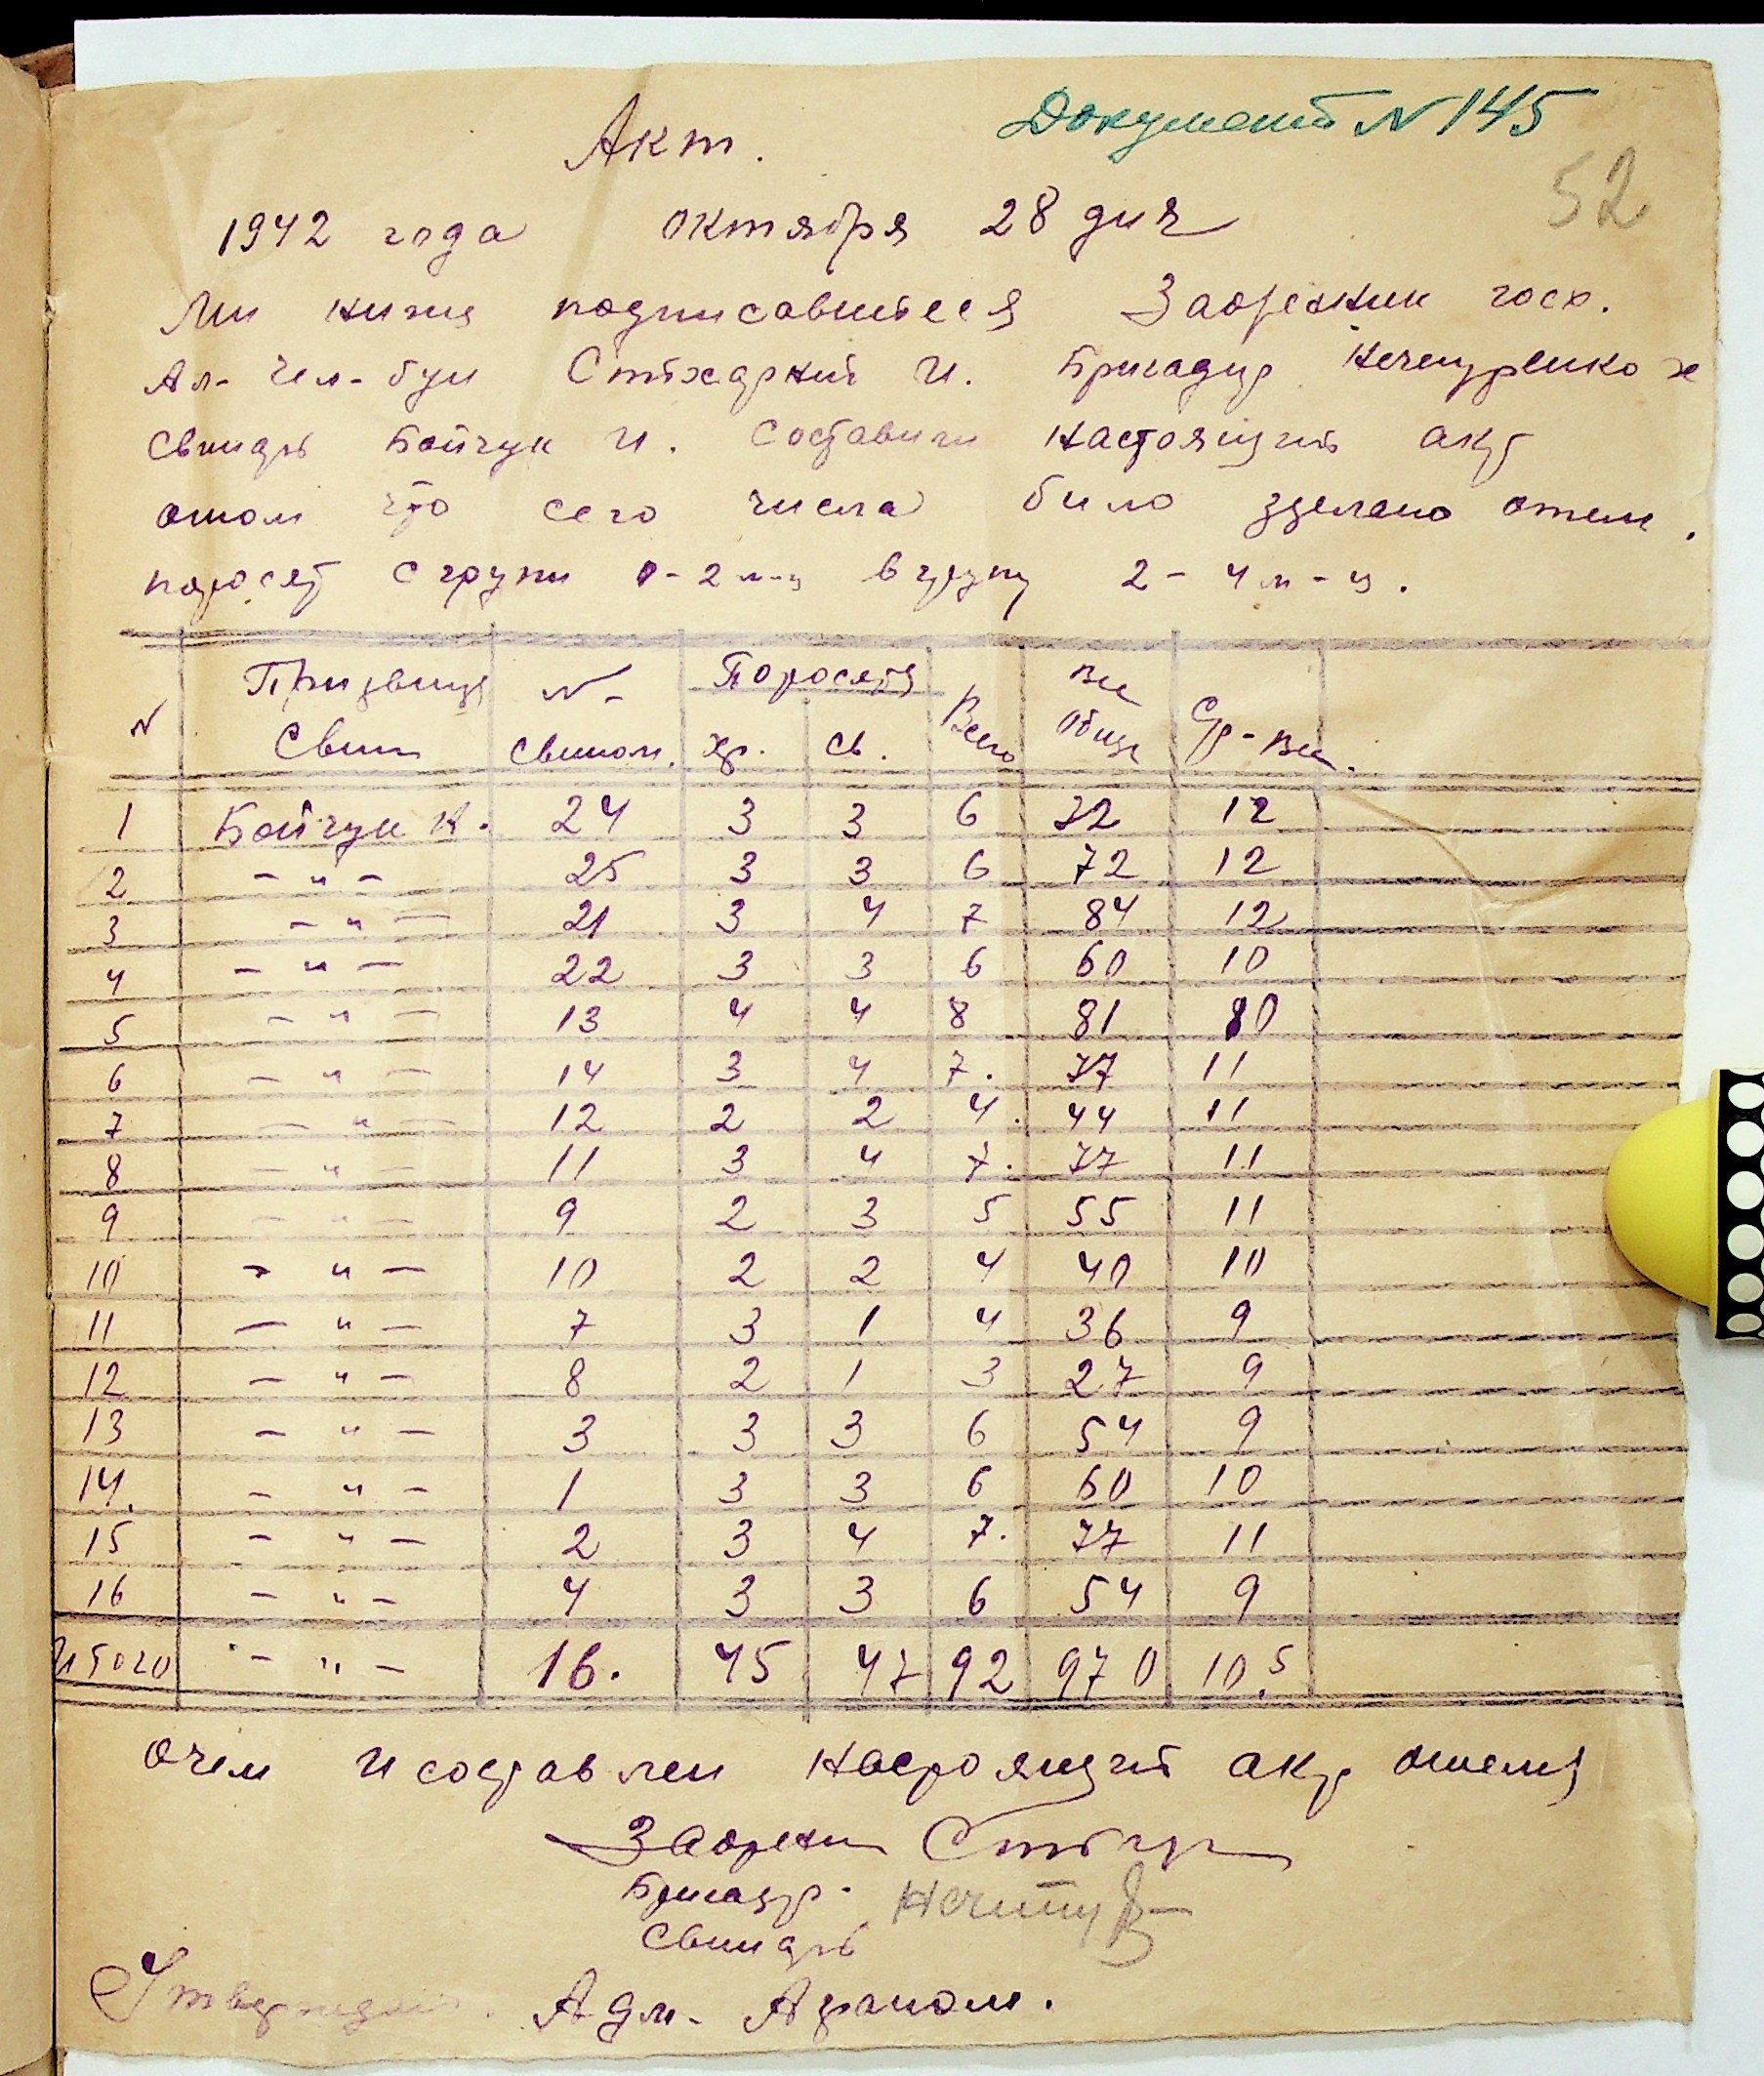 Документ N 145
Акт.
52
1942 года октября 28 дня
Ми ниже подписавшиеся госп.
Бригадир
Бойчук И. составили настоящий акт
отом что сего числа било зделано отем.
поросят с групи 0-2 м-ц в групу 2-4 м-ц.
N Призвище Свин N- свином. Поросята хр. св. Всего вес общи Ср-вес.
1 Бойчук Н. 24 3 3 6 72 12
2 - " - 25 3 3 6 72 12
3 - " - 21 3 4 7 84 12
4 - " - 22 3 3 6 60 10
5 - " - 13 4 4 8 81 10
6 - " - 14 3 4 7. 77 11
7 - " - 12 2 2 4. 44 11
8 - " - 11 3 4 7. 77 11
9 - " - 9 2 3 5 55 11
10 - " - 10 2 2 4 40 10
11 - " - 7 3 1 4 36 9
12 - " - 8 2 1 3 27 9
13 - " - 3 3 3 6 54 9
14. - " - 1 3 3 6 60 10
15 - " - 2 3 4 7. 77 11
16 - " - 4 3 3 6 54 9
Итого - " - 16. 45 47 92 970 10.5
очем и составлен настоящий акт
Бригадир.
Адм. Агроном.